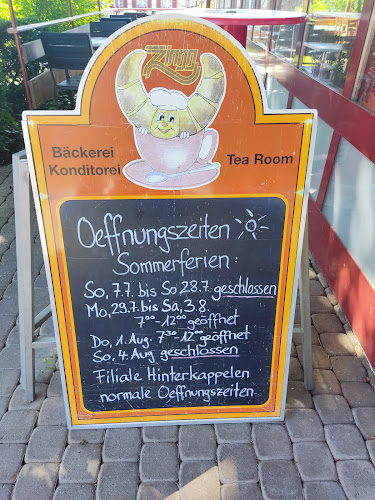 Zingg
Bäckerei
Konditorei
Tea Room
Oeffnungszeiten
Sommerferien:
So, 7.7. bis So 28.7. geschlossen
Mo, 29.7. bis Sa, 3.8.
7⁰⁰-12⁰⁰ geöffnet
Do, 1. Aug. 7³⁰-12⁰⁰ geöffnet
So, 4. Aug geschlossen
Filiale Hinterkappelen
normale Oeffnungszeiten